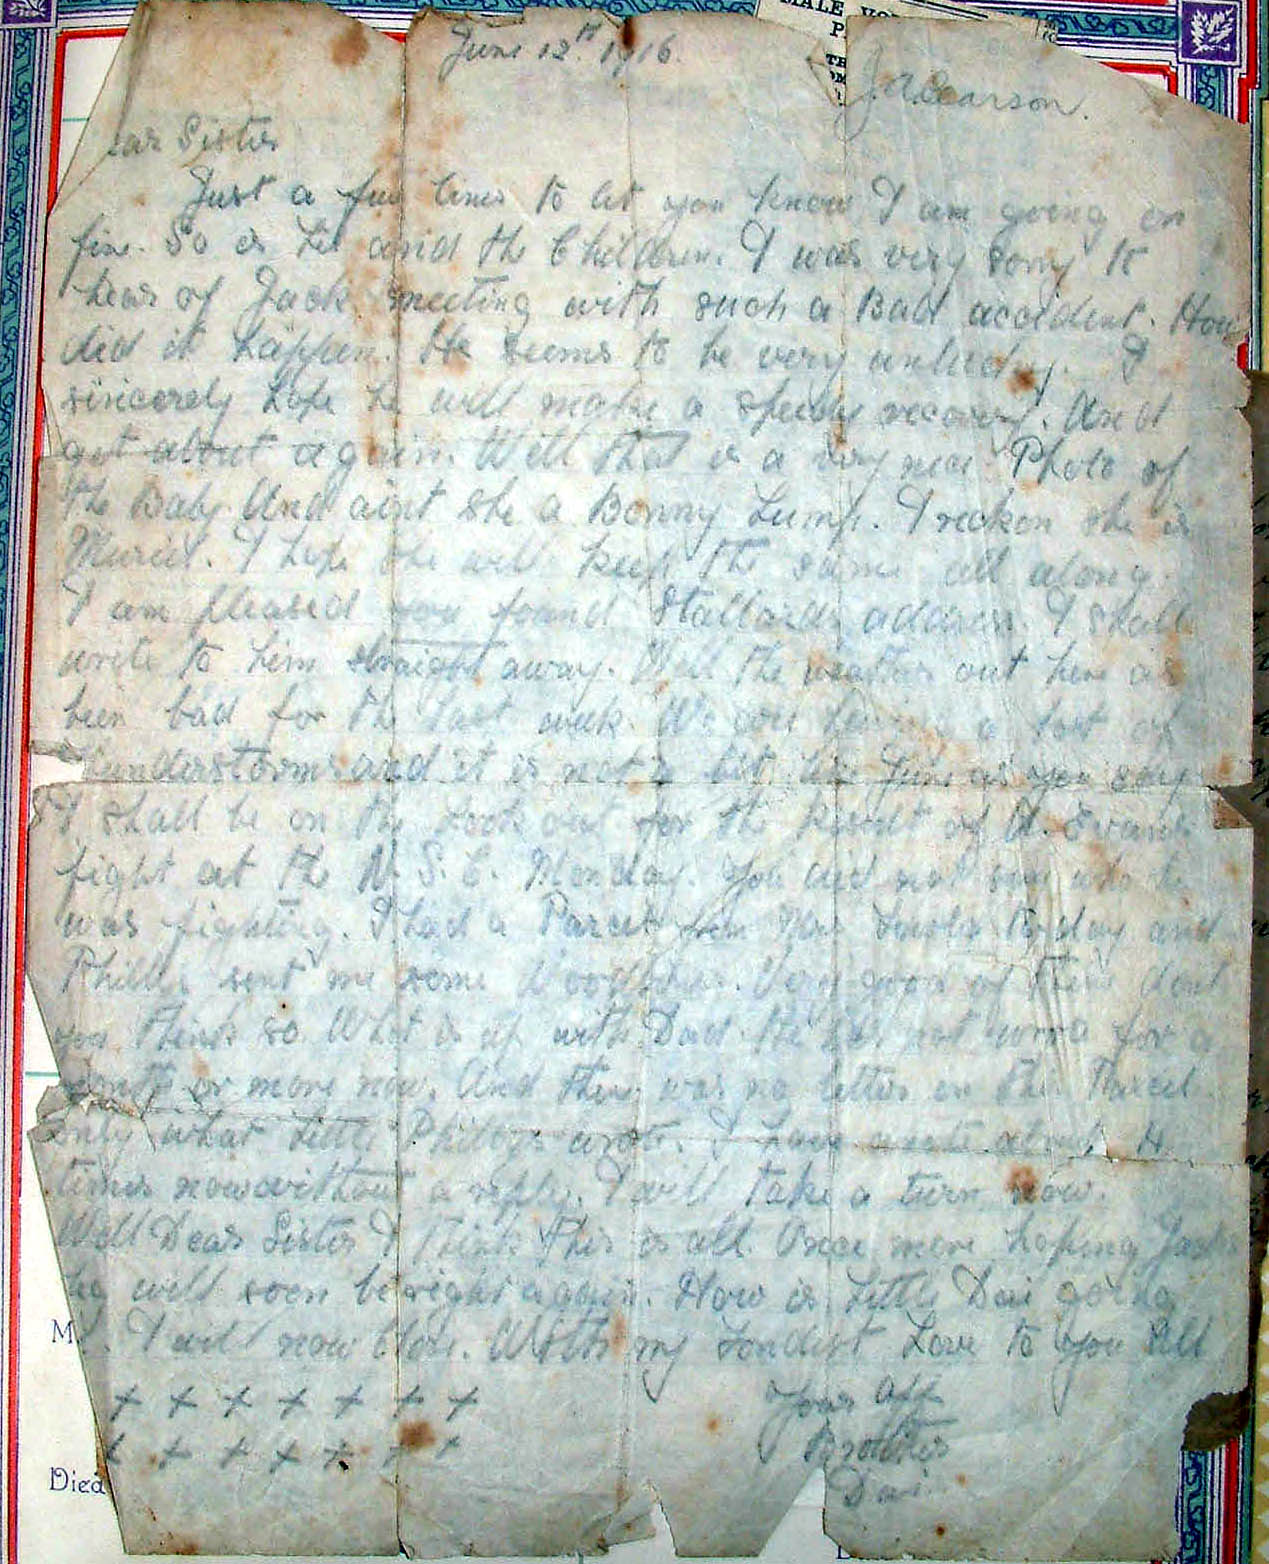 MALE
P
June 12th 1916.
J.A. Pearson.
ear Sister
Just a few lines to let you know I am going on
fine. So is and the Children. I was very sorry to
hear of Jack meeting with such a Bad accident. How
did it happen. He seems to be very unlucky. I
sincerely hope he will make a speedy recovery. And
get about again. Well that is a very nice Photo of
the Baby. And aint she a Bonny Lump. I reckon she is
Muriel. I hope she will keep the same all along.
I am pleased you found address. I shall
write to him straight away. Well the weather out here as
been bad for the last week. We are a lot of
Thunderstorms and it is not a bit like June as you say
I shall be on the look out for the result of
fight at the N.S.C. Monday. You did not say who he
was fighting. I had a Parcel from to day and
sent me some Woodbines. Very good of them dont
you think so. What is up with Dad. He has not wrote for a
month or more now. And there was no letter in the Parcel
only what little wrote. I have wrote about 4
times now without a reply. I will take a turn now.
Well Dear Sister I think this is all. Once more hoping Jacks
leg will soon be right again. How is Little Dai going
I will now Close. With my fondest Love to you All
+ + + + + + +
+ + + + + + +
Your Aff
Brother
Dai.
M
Died